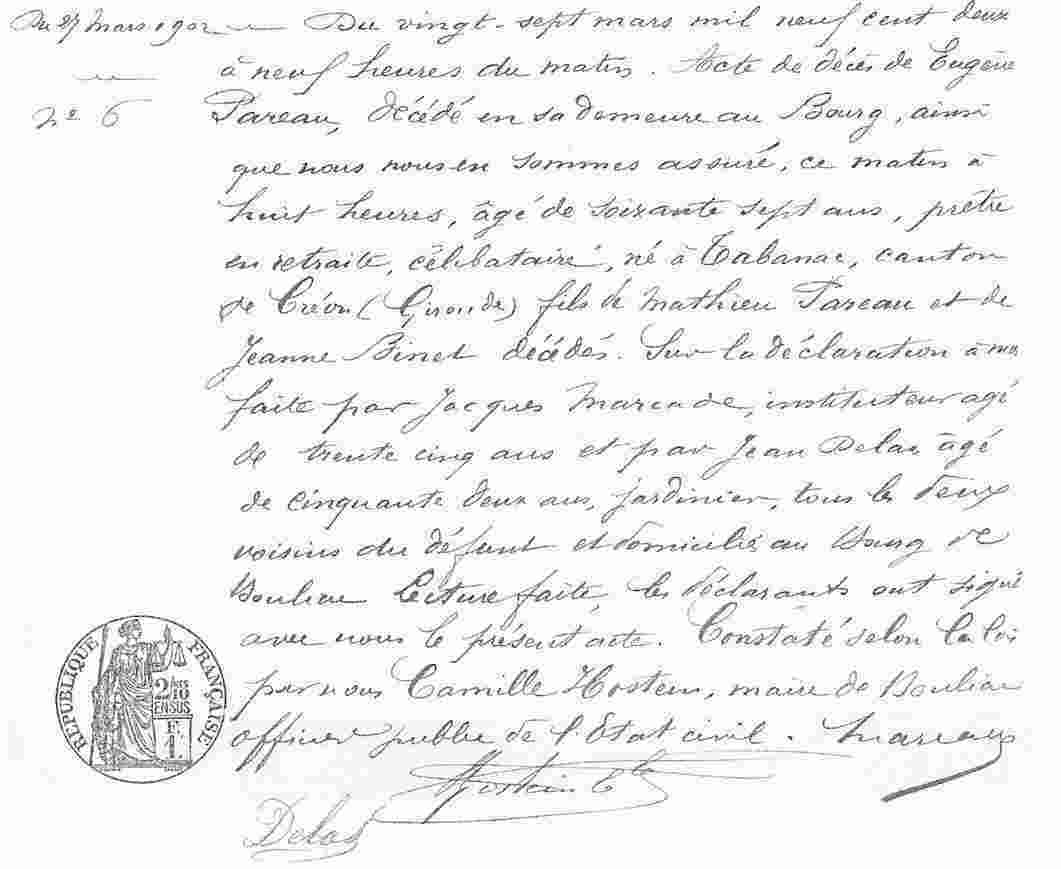 Du 27 Mars 1902 Du vingt-sept mars mil neuf cent deux
à neuf heures du matin. Acte de décès de Eugène
n° 6 Pareau, décédé en sa demeure au Bourg, ainsi
que nous nous en sommes assuré, ce matin à
huit heures, âgé de soixante sept ans, prêtre
en retraite, célibataire, né à Tabanac, canton
de Créon (Gironde) fils de Mathieu Pareau et de
Jeanne Binet décédés. Sur la déclaration à moi
faite par Jacques Marcade, instituteur agé
de trente cinq ans et par Jean Delas âgé
de cinquante deux ans, jardinier, tous les deux
voisins du défunt et domiciliés au Bourg de
Bouliac Lecture faite, les déclarants ont signé
avec nous le présent acte. Constaté selon la loi
par nous Camille Hostein, maire de Bouliac
officier public de l'Etat civil.
Hostein Cle
Delas
RÉPUBLIQUE FRANÇAISE
2/10
EN SUS
F.
1.